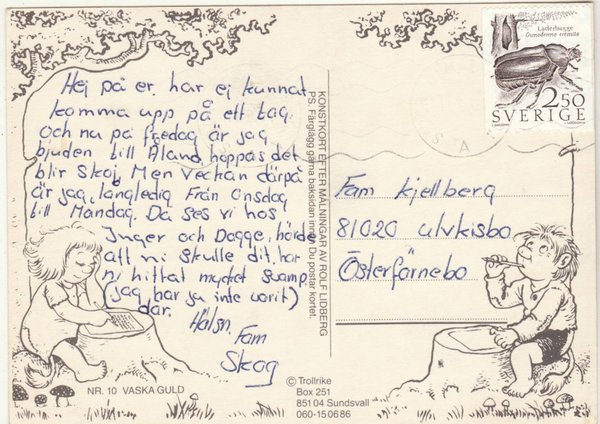 Hej på er, har ej kunnat
komma upp på ett tag.
Och nu på fredag är jag
bjuden till Åland hoppas det
blir Skoj. Men veckan därpå
är jag, långledig Från Onsdag
till Måndag. Då ses vi hos
Inger och Dagge, hörde
att ni skulle dit, har
ni hittat mycket svamp,
(jag har ju inte varit)
där.
Hälsn. Fam
Skog
NR. 10 VASKA GULD
KONSTKORT EFTER MÅLNINGAR AV ROLF LIDBERG
PS. Färglägg gärna baksidan innan Du postar kortet.
© Trollrike
Box 251
851 04 Sundsvall
060-15 06 86
Läderbagge
Osmoderma eremita
2.50
SVERIGE
Fam Kjellberg
81020 ulvkisbo
Österfärnebo